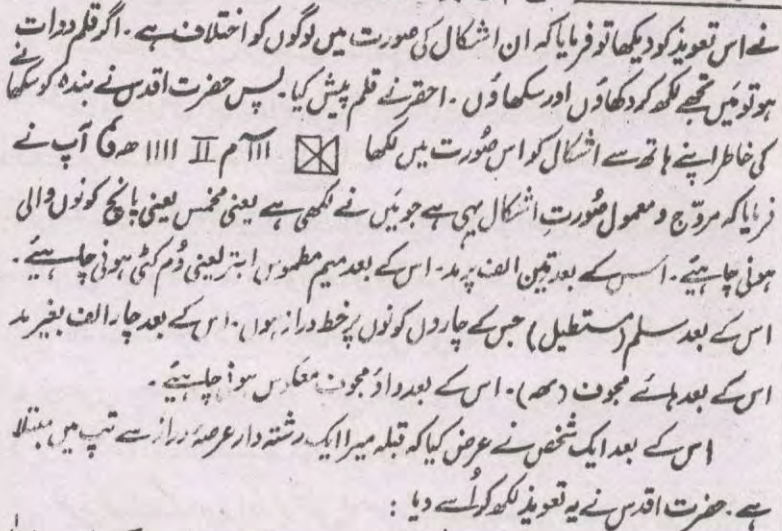 نے اس تعویذ کو دیکھا تو فرمایا کہ ان اشکال کی صورت میں لوگوں کو اختلاف ہے ۔ اگر قلم دوات
ہو تو مَیں تجھے لکھ کر دکھاؤں اور سکھاؤں ۔ احقر نے قلم پیش کیا ۔ پس حضرت اقدس نے بندہ کو سکھانے
کی خاطر اپنے ہاتھ سے اشکال کو اس صُورت میں لکھا ااآ م II اااا ھ آپ نے
فرمایا کہ مروّج و معمول صُورتِ اشکال یہی ہے جو مَیں نے لکھی ہے یعنی مخمس یعنی پانچ کونوں والی
ہونی چاہیئے ۔ اس کے بعد تین الف پر مد ۔ اس کے بعد میم مطموس ابتر یعنی دُم کٹی ہونی چاہیئے ۔
اس کے بعد سلم (مستطیل) جس کے چاروں کونوں پر خط دراز ہوں ۔ اس کے بعد چار الف بغیر مد
اس کے بعد ہائے مجوف (ھ) ۔ اس کے بعد واؤ مجوف معکوس ہونا چاہیئے ۔
اس کے بعد ایک شخص نے عرض کیا کہ قبلہ میرا ایک رشتہ دار عرصۂ دراز سے تپ میں مبتلا
ہے ۔ حضرت اقدس نے یہ تعویذ لکھ کر اُسے دیا :